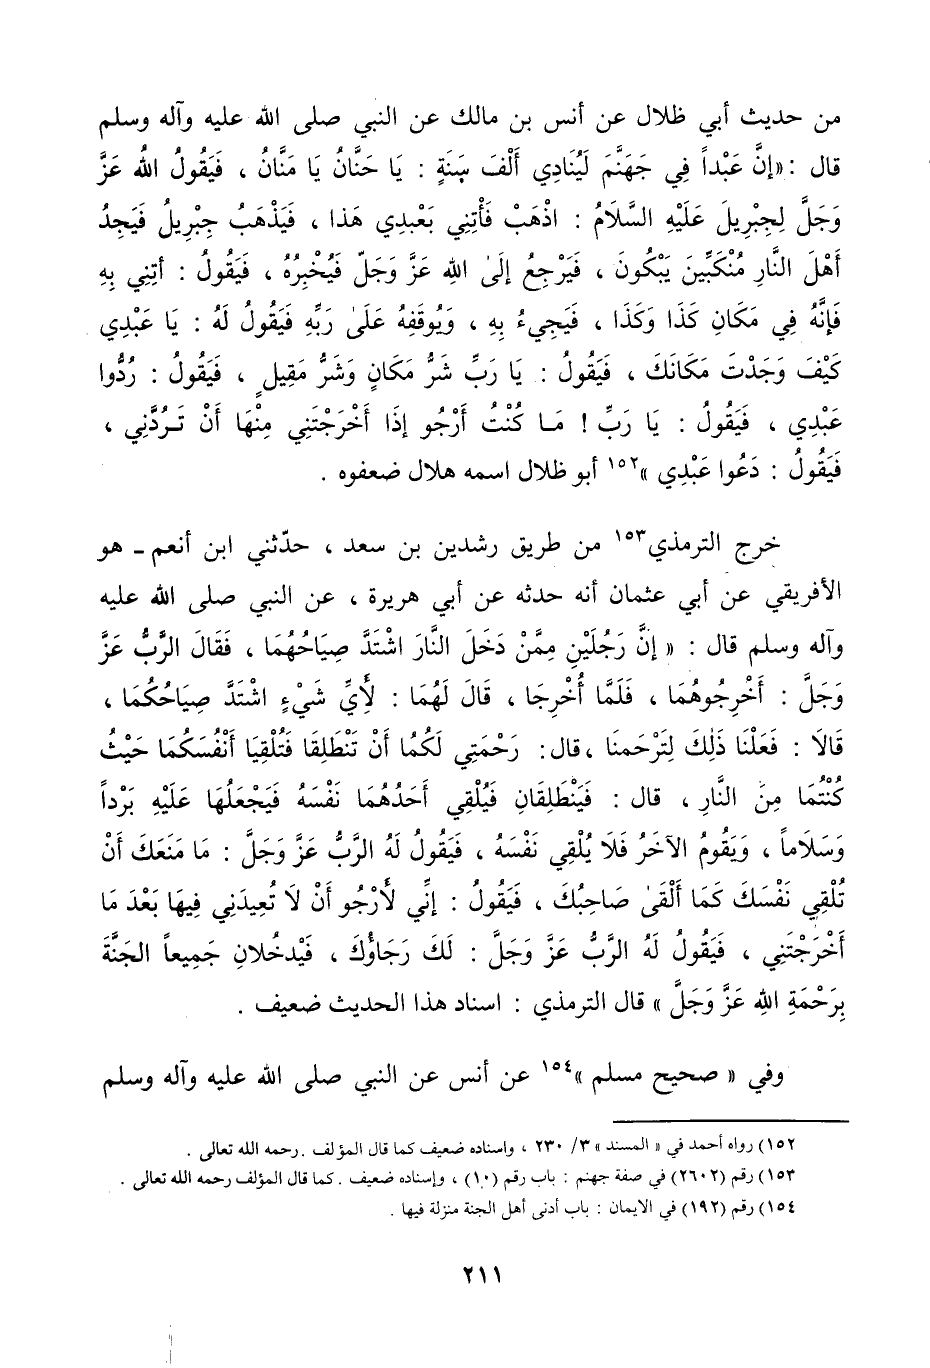 من حديث أبي ظلال عن أنس بن مالك عن النبي صلى الله عليه وآله وسلم
قال : «إنَّ عَبْداً فِي جَهَنَّمَ لَيُنَادِي أَلْفَ سَنَةٍ : يَا حَنَّانُ يَا مَنَّانُ ، فَيَقُولُ اللهُ عَزَّ
وَجَلَّ لِجِبْرِيلَ عَلَيْهِ السَّلَامُ : اذْهَبْ فَأْتِنِي بَعْبدِي هَذا ، فَيَذْهَبُ جِبْرِيلُ فَيَجِدُ
أَهْلَ النَّارِ مُنْكَبِّينَ يَبْكُونَ ، فَيَرْجِعُ إلَىٰ اللهِ عَزَّ وَجَلّ فَيُخْبِرُهُ ، فَيَقُولُ : أتِنِي بِهِ
فَإنَّهُ فِي مَكَانِ كَذَا وَكَذَا ، فَيَجِيءُ بِهِ ، وَيُوقَفِهُ عَلَىٰ رَبِّهِ فَيَقُولُ لَهُ : يَا عَبْدِي
كَيْفَ وَجَدْتَ مَكَانَكَ ، فَيَقُولُ : يَا رَبِّ شَرُّ مَكَانٍ وَشَرُّ مَقِيلٍ ، فَيَقُولُ : رُدُّوا
عَبْدِي ، فَيَقُولُ : يَا رَبِّ ! مَا كُنْتُ أَرْجُو إذَا أَخْرَجْتَنِي مِنْهَا أَنْ تَرُدَّنِي ،
فَيَقُولُ : دَعُوا عَبْدِي »١٥٢ أبو ظلال اسمه هلال ضعفوه .
خرج الترمذي١٥٣ من طريق رشدين بن سعد ، حدّثني ابن أنعم - هو
الأفريقي عن أبي عثمان أنه حدثه عن أبي هريرة ، عن النبي صلى الله عليه
وآله وسلم قال : « إنَّ رَجُلَيْنِ مِمَّنْ دَخَلَ النَّارَ اشْتَدَّ صِيَاحُهُمَا ، فَقَالَ الرَّبُّ عَزَّ
وَجَلَّ : أَخْرِجُوهُمَا ، فَلَمَّا أُخْرِجَا ، قَالَ لَهُمَا : لِأَيِّ شَيْءٍ اشْتَدَّ صِيَاحُكُمَا ،
قَالَا : فَعَلْنَا ذَلِكَ لِتَرْحَمنَا ، قال : رَحْمَتِي لَكُمَا أَنْ تَنْطَلِقَا فَتُلْقِيَا أَنْفُسَكُمَا حَيْثُ
كُنْتُمَا مِنَ النَّارِ ، قال : فَيَنْطَلِقَانِ فَيُلْقِي أَحَدُهُمَا نَفْسَهُ فَيَجْعَلُهَا عَلَيْهِ بَرْداً
وَسَلَاماً ، وَيَقُومُ الآخَرُ فَلَا يُلْقِي نَفْسَهُ ، فَيَقُولُ لَهُ الرَّبُّ عَزَّ وَجَلَّ : مَا مَنَعَكَ أَنْ
تُلْقِي نَفْسَكَ كَمَا أَلْقَىٰ صَاحِبُكَ ، فَيَقُولُ : إنِّي لَأَرْجُو أَنْ لَا تُعِيدَنِي فِيهَا بَعْدَ مَا
أَخْرَجْتَنِي ، فَيَقُولُ لَهُ الرَّبُّ عَزَّ وَجَلَّ : لَكَ رَجَاؤُكَ ، فَيْدخُلَانِ جَمِيعاً الجَنَّةَ
بِرَحْمَةِ اللهِ عَزَّ وَجَلَّ » قال الترمذي : اسناد هذا الحديث ضعيف .
وفي « صحيح مسلم »١٥٤ عن أنس عن النبي صلى الله عليه وآله وسلم
١٥٢) رواه أحمد في « المسند » ٣/ ٢٣٠ ، واسناده ضعيف كما قال المؤلف . رحمه الله تعالى .
١٥٣) رقم (٢٦٠٢) في صفة جهنم : باب رقم (١٠) ، وإسناده ضعيف . كما قال المؤلف رحمه الله تعالى .
١٥٤) رقم (١٩٢) في الايمان : باب أدنى أهل الجنة منزلة فيها .
٢١١